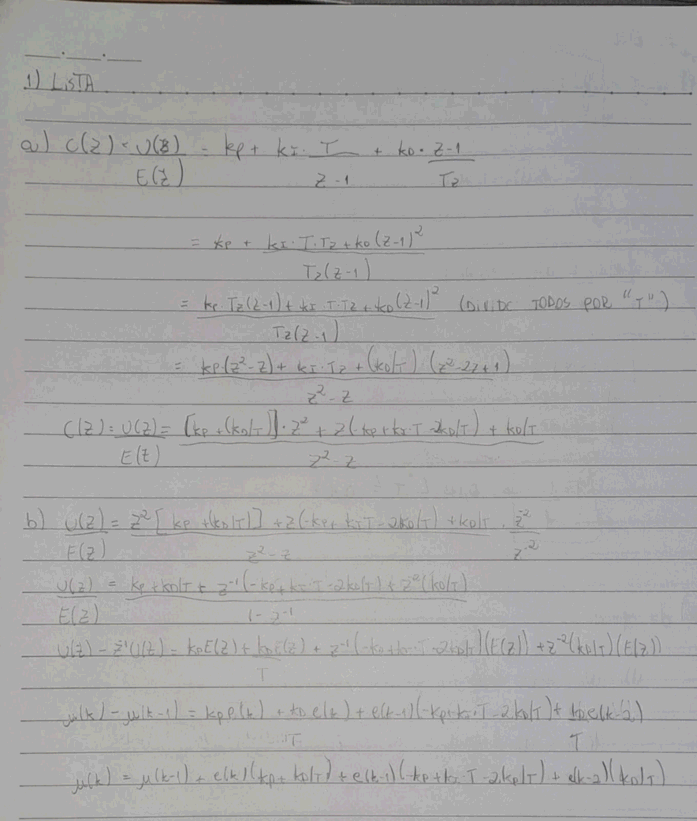 1) LISTA
a) C(z) = U(z)/E(z) = kp + kI · T/(z-1) + kD · (z-1)/(Tz)
= kp + (kI·T·Tz + kD(z-1)²)/(Tz(z-1))
= (kp Tz(z-1) + kI·T·Tz + kD(z-1)²)/(Tz(z-1)) (DIVIDE TODOS POR "T")
= (kp(z²-z) + kI·Tz + (kD/T)·(z²-2z+1))/(z²-z)
C(z) = U(z)/E(z) = ([kp + (kD/T)]·z² + z(-kp + kI·T - 2kD/T) + kD/T)/(z²-z)
b) U(z)/E(z) = (z²[kp + (kD/T)] + z(-kp + kI·T - 2kD/T) + kD/T)/(z²-z) · z⁻²/z⁻²
U(z)/E(z) = (kp + kD/T + z⁻¹(-kp + kI·T - 2kD/T) + z⁻²(kD/T))/(1 - z⁻¹)
U(z) - z⁻¹U(z) = kpE(z) + kDE(z)/T + z⁻¹(-kp + kI·T - 2kD/T)(E(z)) + z⁻²(kD/T)(E(z))
μ(k) - μ(k-1) = kp e(k) + kD e(k)/T + e(k-1)(-kp + kI·T - 2kD/T) + kD e(k-2)/T
μ(k) = μ(k-1) + e(k)(kp + kD/T) + e(k-1)(-kp + kI·T - 2kD/T) + e(k-2)(kD/T)